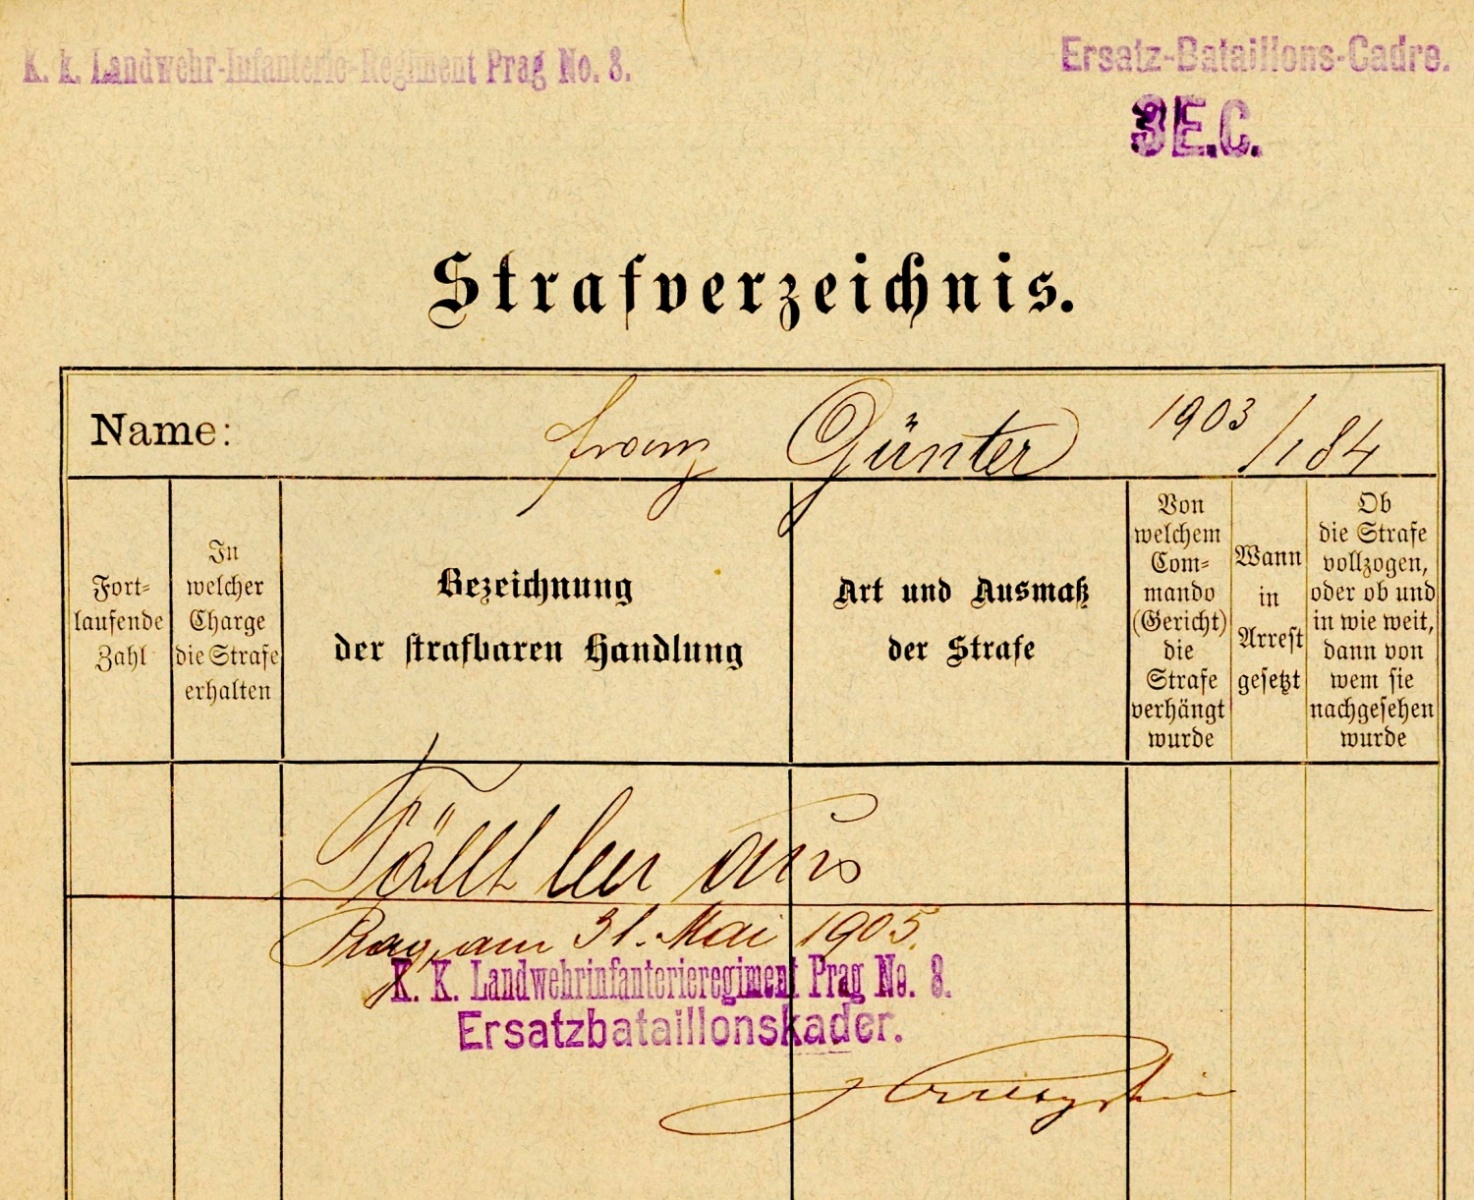 K. k. Landwehr-Infanterie-Regiment Prag No. 8.
Ersatz-Bataillons-Cadre.
3E.C.
Strafverzeichnis.
Name: Franz Günter 1903/184
Fort-
laufende
Zahl
In
welcher
Charge
die Strafe
erhalten
Bezeichnung
der strafbaren Handlung
Art und Ausmaß
der Strafe
Von
welchem
Com-
mando
(Gericht)
die
Strafe
verhängt
wurde
Wann
in
Arrest
gesetzt
Ob
die Strafe
vollzogen,
oder ob und
in wie weit,
dann von
wem sie
nachgesehen
wurde
Fällt leer aus
Prag, am 31. Mai 1905.
K. K. Landwehrinfanterieregiment Prag No. 8.
Ersatzbataillonskader.